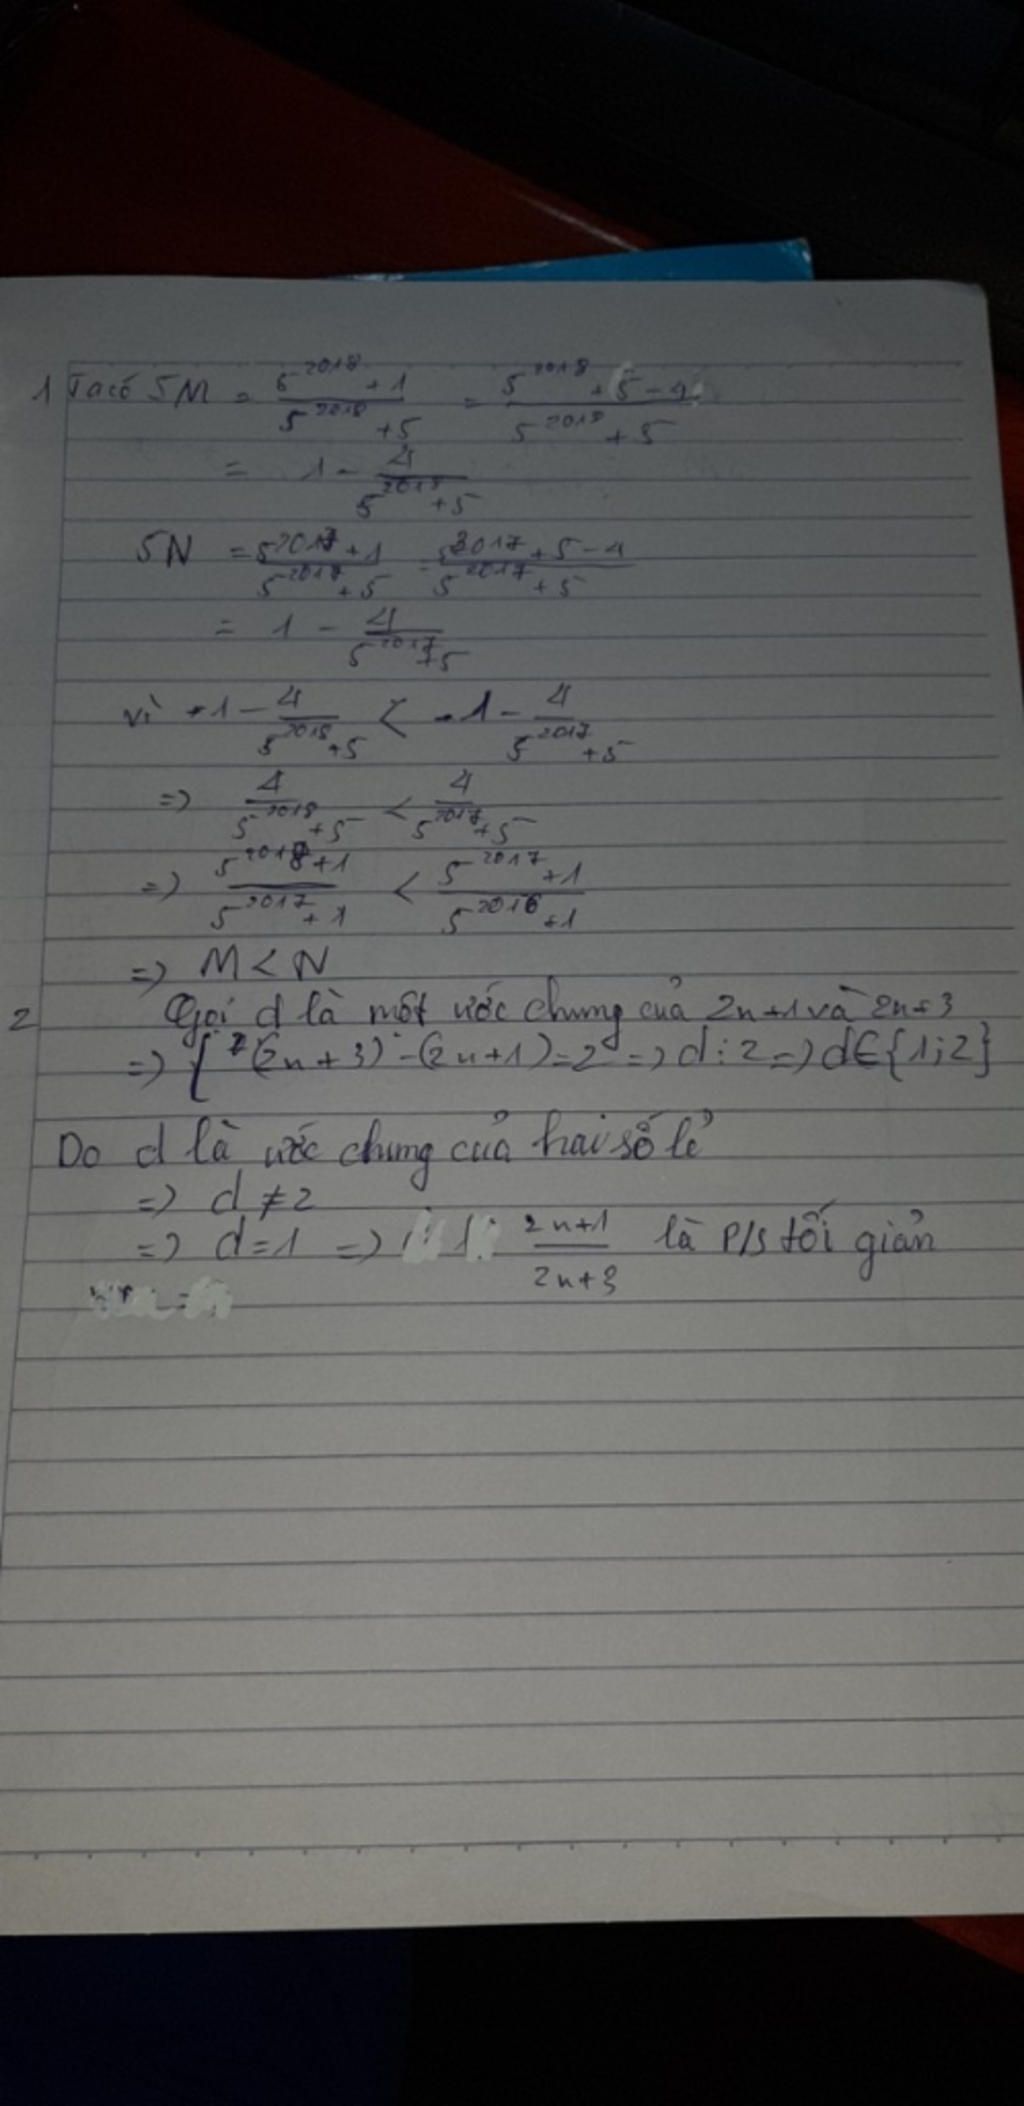 1 Ta có 5M = (5^2018 + 1)/(5^2018 + 5) = (5^2018 + 5 - 4)/(5^2018 + 5)
= 1 - 4/(5^2018 + 5)
5N = (5^2017 + 1)/(5^2017 + 5) = (5^2017 + 5 - 4)/(5^2017 + 5)
= 1 - 4/(5^2017 + 5)
vì 1 - 4/(5^2018 + 5) < 1 - 4/(5^2017 + 5)
=> 4/(5^2018 + 5) < 4/(5^2017 + 5)
=> (5^2018 + 1)/(5^2017 + 1) < (5^2017 + 1)/(5^2016 + 1)
=> M < N
2 Gọi d là một ước chung của 2n+1 và 2n+3
=> { (2n + 3) - (2n+1) = 2 => d ⋮ 2 => d ∈ {1; 2}
Do d là ước chung của hai số lẻ
=> d ≠ 2
=> d = 1 => (2n+1)/(2n+3) là P/S tối giản